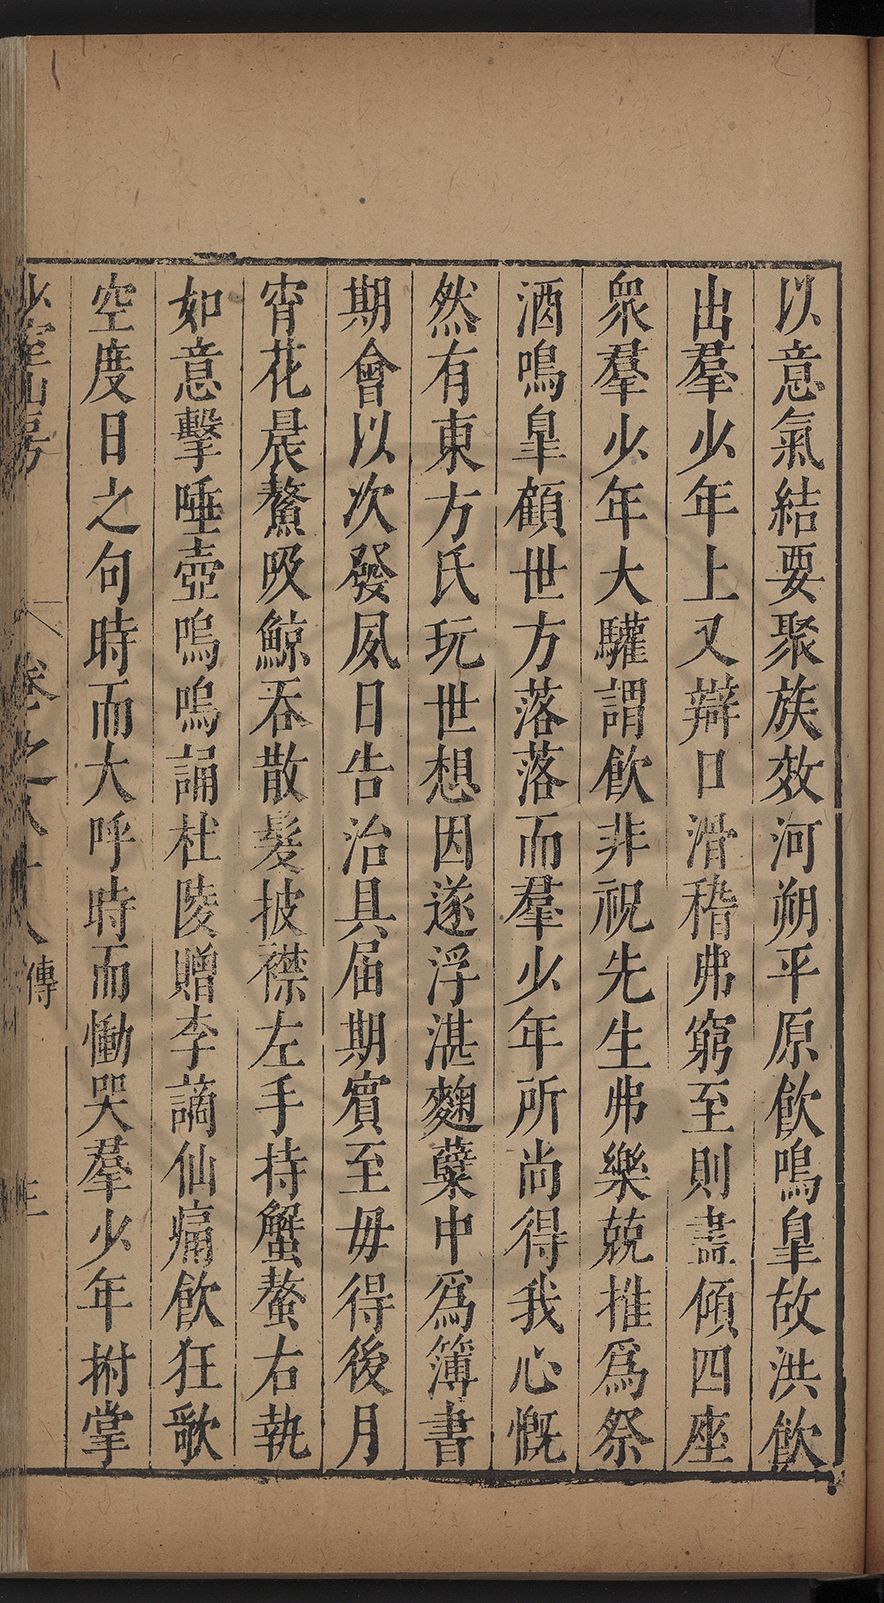 以意氣結要聚族效河朔平原飲鳴皐故洪飲
出羣少年上又辯口滑稽弗窮至則盡傾四座
衆羣少年大驩謂飲非祝先生弗樂兢推爲祭
酒鳴皐顧世方落落而羣少年所尚得我心慨
然有東方氏玩世想因遂浮湛麴糵中爲簿書
期會以次發夙日告治具届期賓至毋得後月
宵花晨鰲吸鯨吞散髮披襟左手持蟹螯右執
如意擊唾壺嗚嗚誦杜陵贈李謫仙痛飲狂歌
空度日之句時而大呼時而慟哭羣少年拊掌
少室山房 卷之八十八 傳 三